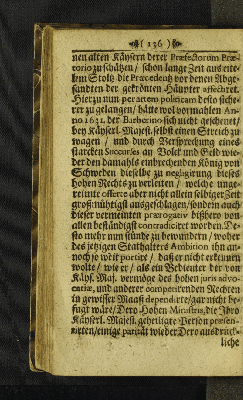 ( 136 )
nen alten Käysern derer Præfectorum Præ-
torio zu schätzen/ schon lange Zeit aus eite-
lem Stoltz die Præcedentz vor denen Abge-
sandten der gekrönten Häupter affectiret.
Hierzu nun per artem politicam desto siche-
rer zu gelangen/ hätte wol vormahlen An-
no 1632. der Barberino sich nicht gescheuet/
bey Käyserl. Majest. selbst einen Streich zu
wagen / und durch Versprechung eines
starcken Succurses an Volck und Geld wie-
der den damahls einbrechenden König von
Schweden dieselbe zu negligirung dieses
hohen Rechts zu verleiten / welche unge-
reimte offerte aber nicht allein selbiger Zeit
großmühtigst ausgeschlagen/ sondern auch
dieser vermeinten prærogativ bißhero von
allen beständigst contradiciret worden. De-
sto mehr nun stünde zu bewundern / woher
des jetzigen Statthalters Ambition ihn an-
noch so weit portirt / daß er nicht erkennen
wolte / wie er / als ein Bedienter der von
Käys. Maj. vermöge des hohen juris advo-
catiæ, und anderer competirenden Rechten
in gewisser Maaß dependirte/ gar nicht be-
fugt wäre/ Dero Hohen Ministris, die Ihro
Käyserl. Majest. geheiligte Person præsen-
tirten/ einige parität wieder Dero ausdrück-
liche